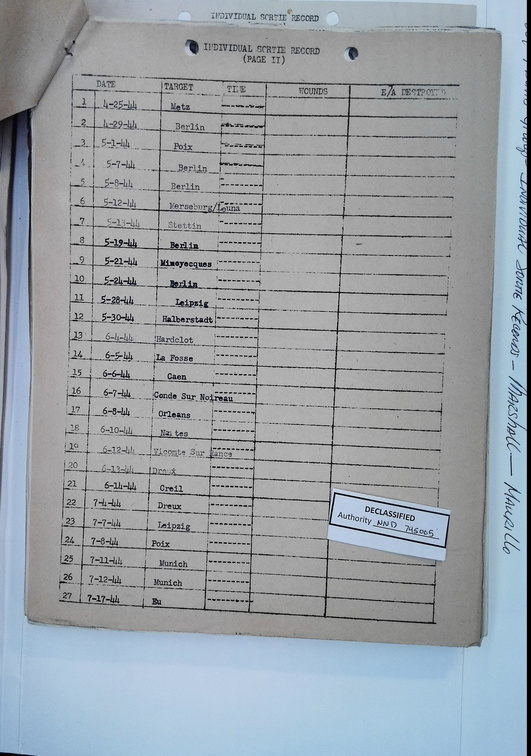 INDIVIDUAL SORTIE RECORD
INDIVIDUAL SORTIE RECORD
(PAGE II)
DATE TARGET TIME WOUNDS E/A DESTROYED
1 4-25-44 Metz --------
2 4-29-44 Berlin --------
3 5-1-44 Poix --------
4 5-7-44 Berlin --------
5 5-8-44 Berlin --------
6 5-12-44 Merseburg/Leuna
7 5-13-44 Stettin --------
8 5-19-44 Berlin --------
9 5-21-44 Mimoyecques --------
10 5-24-44 Berlin --------
11 5-28-44 Leipzig --------
12 5-30-44 Halberstadt --------
13 6-4-44 Hardelot --------
14 6-5-44 La Fosse --------
15 6-6-44 Caen --------
16 6-7-44 Conde Sur Noireau
17 6-8-44 Orleans --------
18 6-10-44 Nantes --------
19 6-12-44 Vicomte Sur Rance
20 6-13-44 Dreux --------
21 6-14-44 Creil --------
22 7-4-44 Dreux --------
23 7-7-44 Leipzig --------
24 7-8-44 Poix --------
25 7-11-44 Munich --------
26 7-12-44 Munich --------
27 7-17-44 Eu --------
DECLASSIFIED
Authority NND 745005
Individual Sortie Records - Marshall -